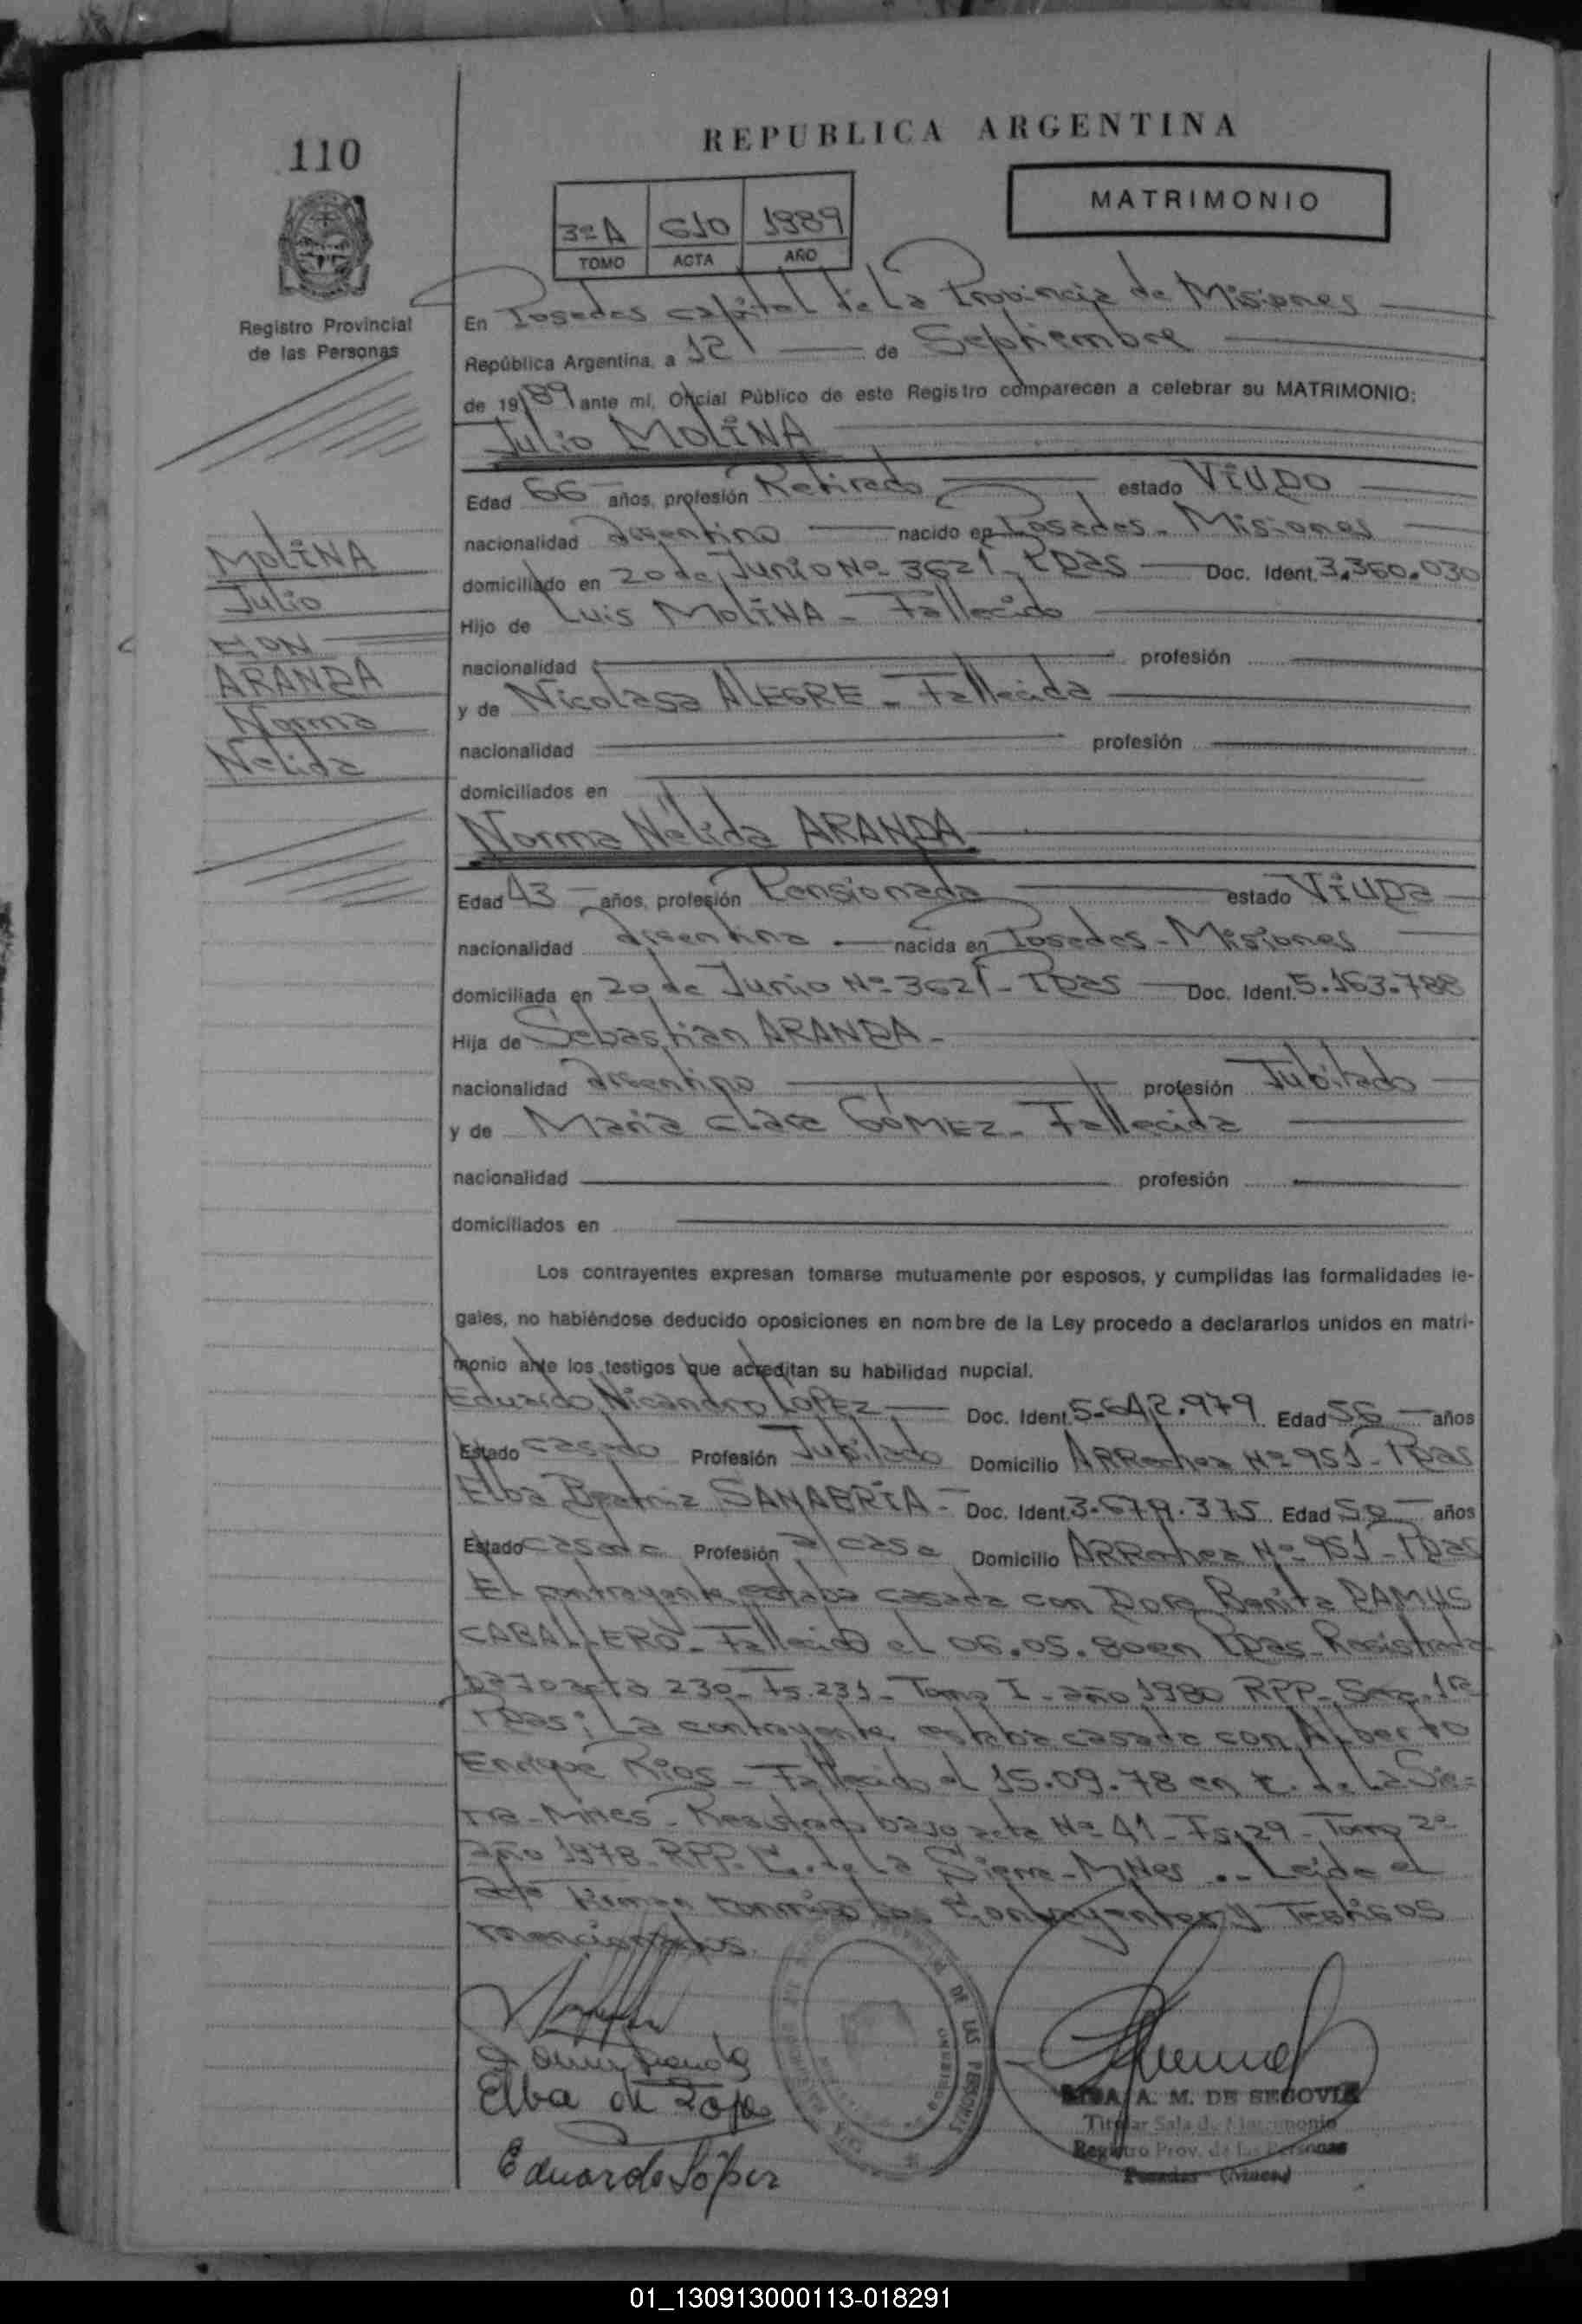 110
REPUBLICA ARGENTINA
MATRIMONIO
3º A 610 1989
TOMO ACTA AÑO
Registro Provincial
de las Personas
En Posadas capital de la Provincia de Misiones
República Argentina, a 12 de Septiembre
de 1989 ante mí, Oficial Público de este Registro comparecen a celebrar su MATRIMONIO:
Julio MOLINA
Edad 66 años, profesión Retirado estado Viudo
nacionalidad Argentino nacido en Posadas - Misiones
domiciliado en 20 de Junio Nº 3621 - Pdas Doc. Ident. 3.360.030
Hijo de Luis MOLINA - Fallecido
nacionalidad profesión
y de Nicolasa ALEGRE - Fallecida
nacionalidad profesión
domiciliados en
MOLINA
Julio
CON
ARANDA
Norma
Nelida
Norma Nélida ARANDA
Edad 43 años, profesión Pensionada estado Viuda
nacionalidad Argentina nacida en Posadas - Misiones
domiciliada en 20 de Junio Nº 3621 - Pdas Doc. Ident. 5.163.788
Hija de Sebastian ARANDA -
nacionalidad Argentino profesión Jubilado
y de Maria Clara GÓMEZ - Fallecida
nacionalidad profesión
domiciliados en
Los contrayentes expresan tomarse mutuamente por esposos, y cumplidas las formalidades le-
gales, no habiéndose deducido oposiciones en nombre de la Ley procedo a declararlos unidos en matri-
monio ante los testigos que acreditan su habilidad nupcial.
Eduardo Nicandro LOPEZ Doc. Ident. 5.642.979 Edad 56 años
Estado casado Profesión Jubilado Domicilio ARRechea Nº 951 - Pdas
Elba Beatriz SANABRIA - Doc. Ident. 3.679.375 Edad 50 años
Estado casada Profesión a/casa Domicilio ARRechea Nº 951 - Pdas
El contrayente estaba casado con Dora Benita
CABALLERO - Fallecida el 06.05.80 en Pdas - Registrada
bajo acta 230 - Fs. 231 - Tomo I - año 1980 RPP - Sec. 1ra
Pdas; La contrayente estaba casada con Alberto
Enrique Rios - Fallecido el 15.09.78 en C. de la Sie-
rra - MNES - Registrado bajo acta Nº 41 - Fs. 29 - Tomo 2º
año 1978 - RPP - C. de la Sierra - MNes .- Leída el
acta Firman conmigo los Contrayentes y Testigos
mencionados.
Elba de Lopez
Eduardo López
DE LAS PERSONAS
A. M. DE SEGOVIA
Titular Sala de Matrimonio
Registro Prov. de las Personas
Posadas (Mnes)
01_130913000113-018291